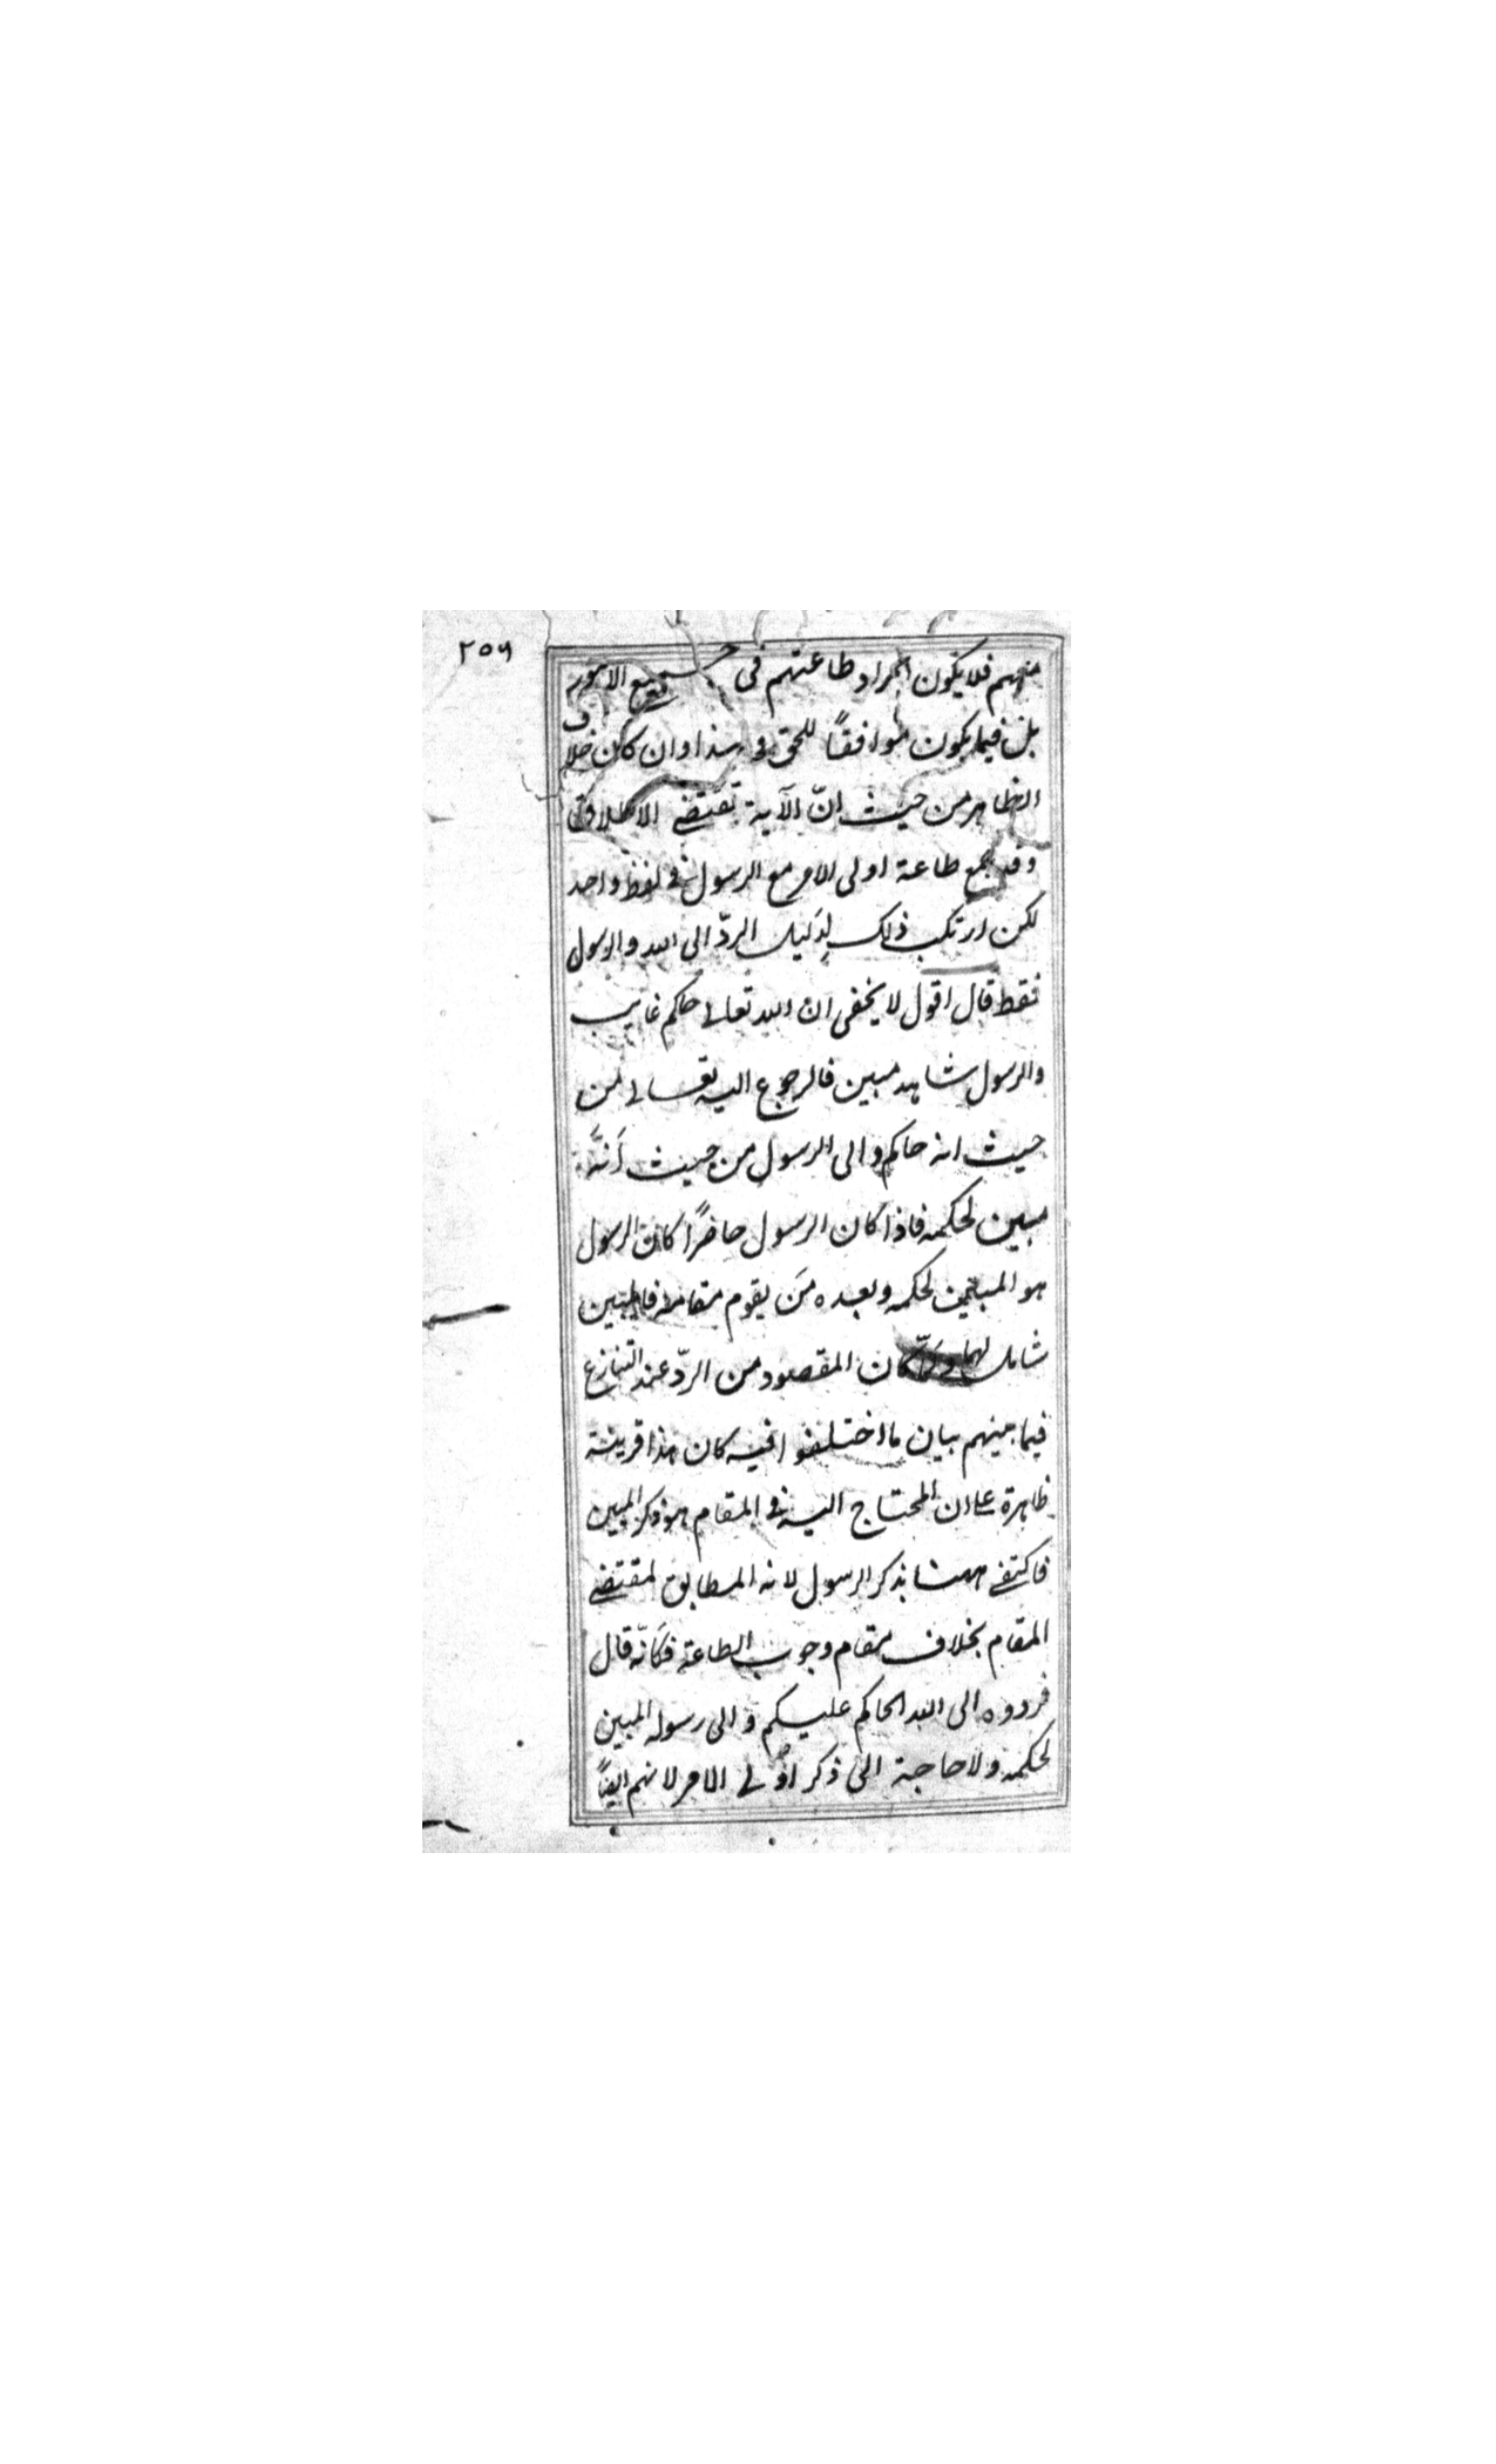 ٢٥٦
منهم فلا يكون المراد طاعتهم فى جميع الامور
بل فيما يكون موافقًا للحق فى هذا وان كان خلاف
الظاهر من حيث انّ الآية تقتضى الاطلاق
وقد جمع طاعة اولى الامر مع الرسول فى لفظ واحد
لكن ارتكب ذلك لِدَليل الردّ الى الله والرسول
فقط قال اقول لا يخفى ان الله تعالى حاكم غايب
والرسول شاهد مبين فالرجوع اليه تعالى من
حيث انه حاكم والى الرسول من حيث أنّه
مبين لحكمه فاذا كان الرسول حاضرًا كان الرسول
هو المبين لحكمه وبعده مَن يقوم مقامه فالمبين
شامل لهما ولمّا كان المقصود من الردّ عند التنازع
فيما بينهم بيان ما اختلفوا فيه كان هذا قرينة
ظاهرة على ان المحتاج اليه فى المقام هو ذكر المبين
فاكتفى ههنا بذكر الرسول لانه المطابق لمقتضى
المقام بخلاف مقام وجوب الطاعة فكأنّه قال
فردوه الى الله الحاكم عليكم والى رسوله المبين
لحكمه ولا حاجة الى ذكر اولى الامر لانهم ايضًا